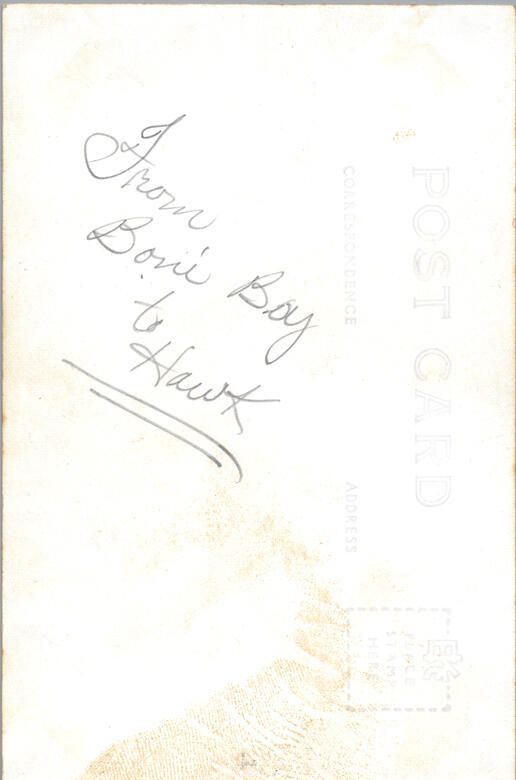 From
Boni Boy
to
Hawk
POST CARD
CORRESPONDENCE
ADDRESS
PLACE
STAMP
HERE